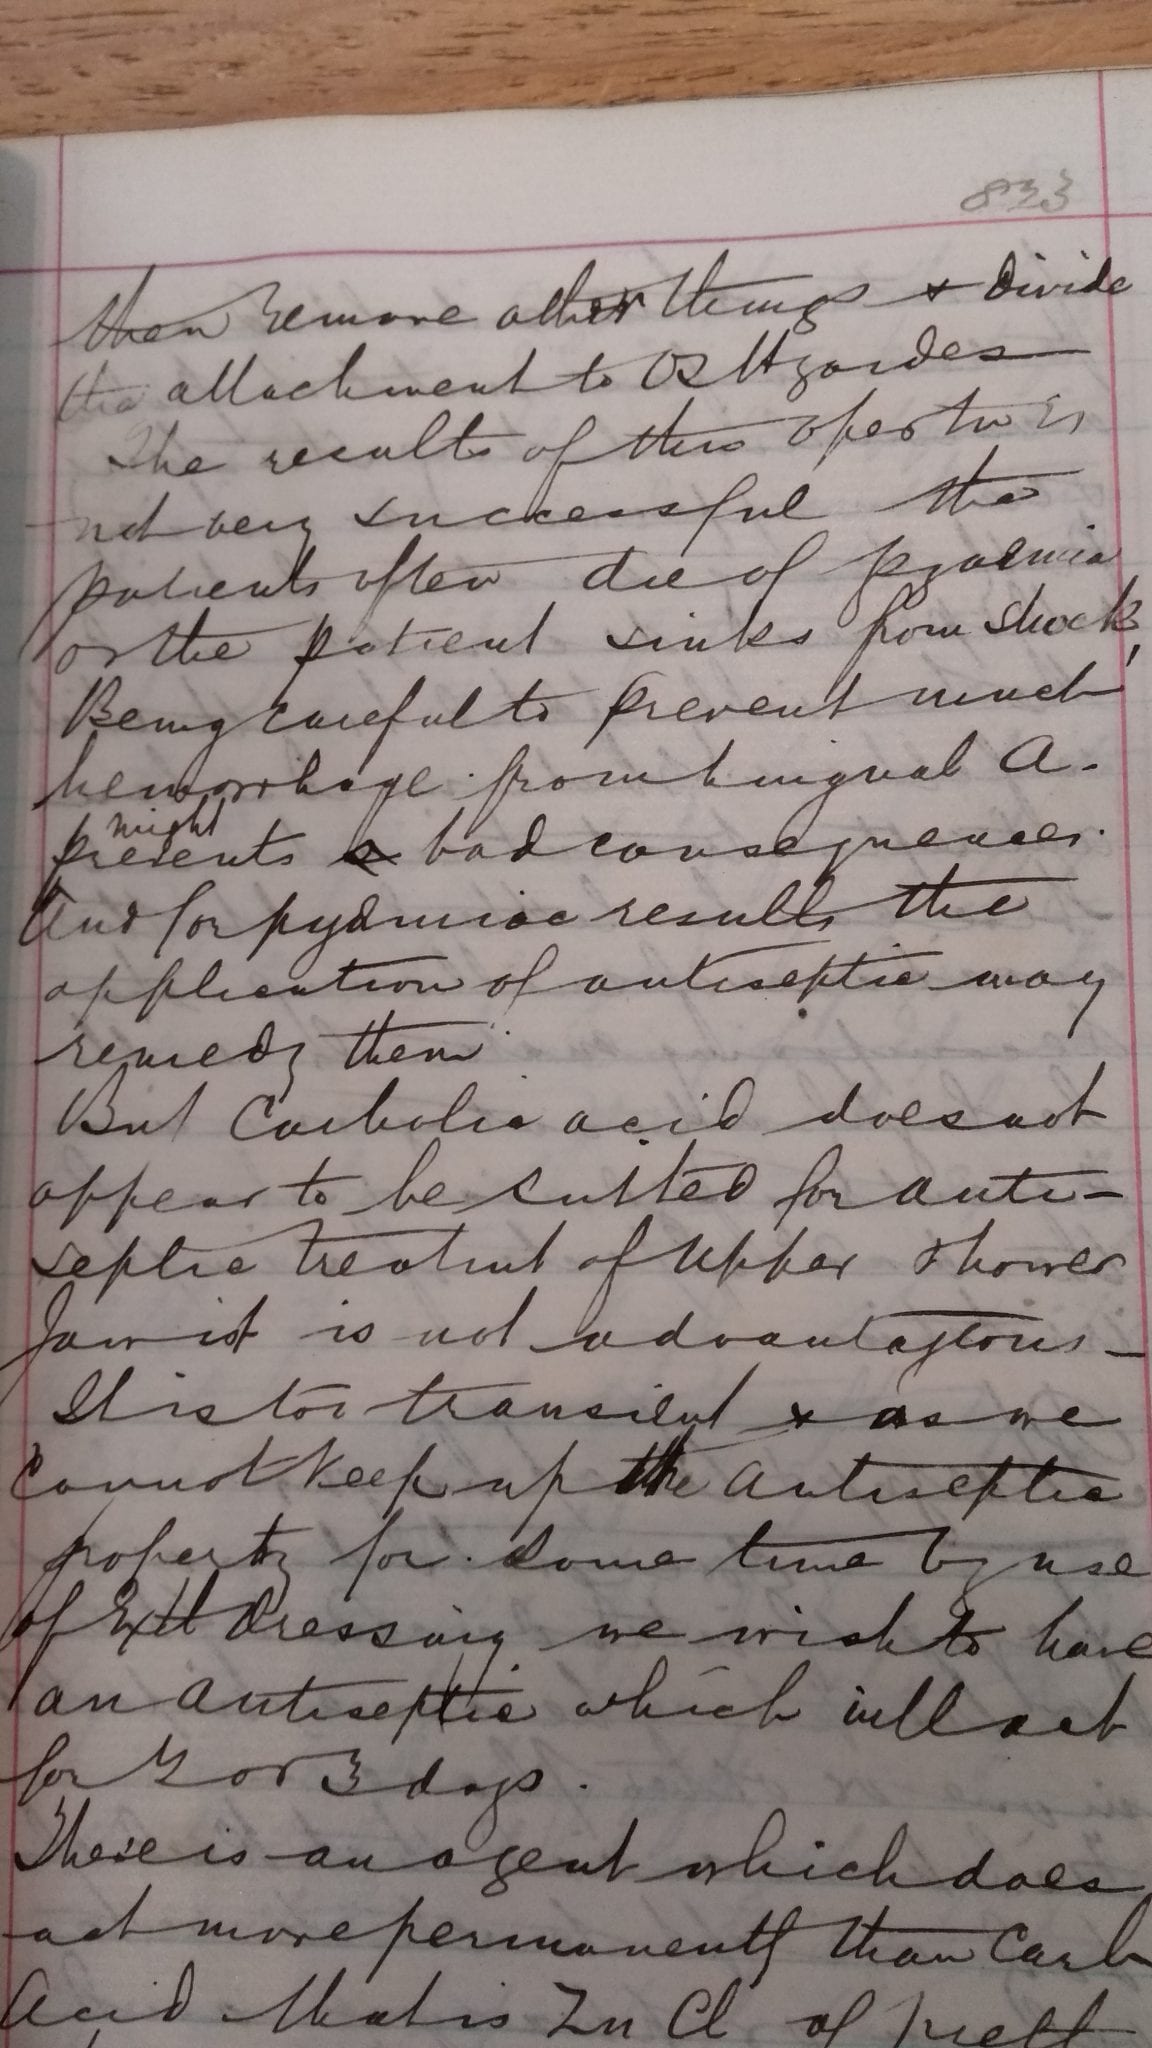 833
then remove other things & divide
the attachment to OS Hyoides
The results of this oper tn is
not very successful the
patients often die of pyaemia
or the patient sinks from shock,
Being careful to prevent much
hemorrhage from Lingual A.
might
prevents bad consequences.
And for pyaemiac results the
application of antiseptic may
remedy them
But Carbolic acid does not
appear to be suited for anti-
septic treatmt of upper & lower
Jaw it is not advantageous -
It is too transient & as we
cannot keep up the antiseptic
property for some time by use
of Extl dressing we wish to have
an antiseptic which will act
for 2 or 3 days.
There is an agent which does
act more permanently than Carb
Acid that is Zn Cl of